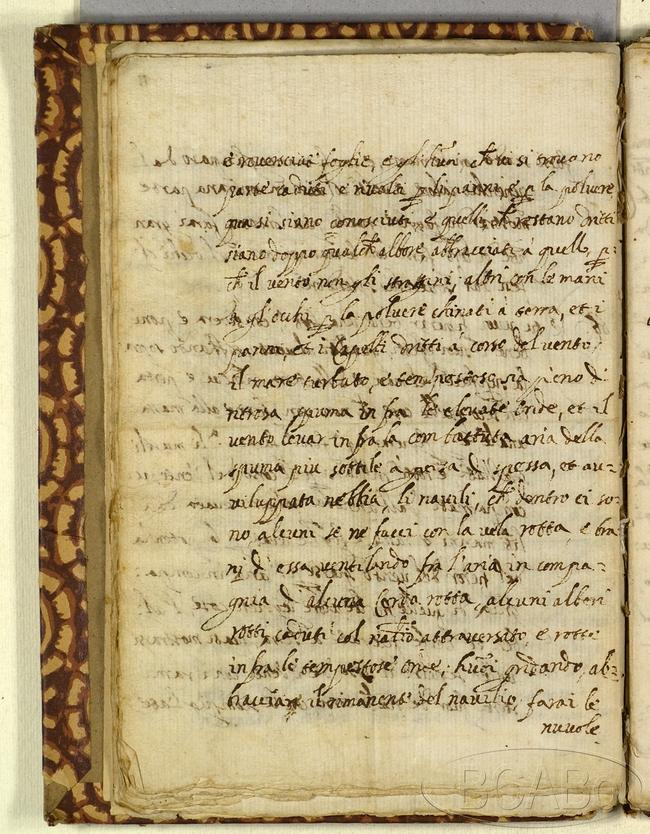 e rovesciate foglie, e gli huomini, ch̃ ivi si trovono
parte caduti e rivolti p̱ li panni, e p̱ la polvere
quasi siano conosciuti, e quelli ch̃ restano dritti
siano doppo qualch̃ albore, abbracciati à quello, p̱-
ch̃ il vento non gli strassini, altri con le mani
à gl'ochi p̱ la polvere chinati à terra, et i
panni, et i capelli dritti à corso del vento.
il mare turbato, e tempestoso sia pieno di
ritrosa spuma in fra le elevate onde, et il
vento levar in fra la combattuta aria della
spuma piu sottile à guisa di spessa, et au=
viluppata nebbia, li navili, ch̃ dentro ci so=
no, alcuni se ne facci con la vela rotta, e bra
ni d'essa ventilando fra l'aria in compa=
gnia d'alcuna corda rotta, alcuni alberi
rotti caduti col navilio attraversato, e rotto
in fra le tempestose onde, huõi gridando, ab=
bracciare il rimanente del navilio, farai le
nuvole
BCABo